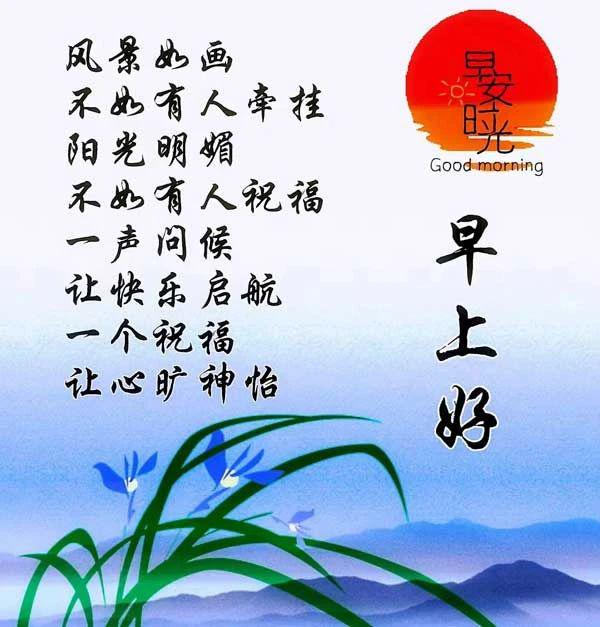 风景如画
不如有人牵挂
阳光明媚
不如有人祝福
一声问候
让快乐启航
一个祝福
让心旷神怡
早安
时光
Good morning
早上好